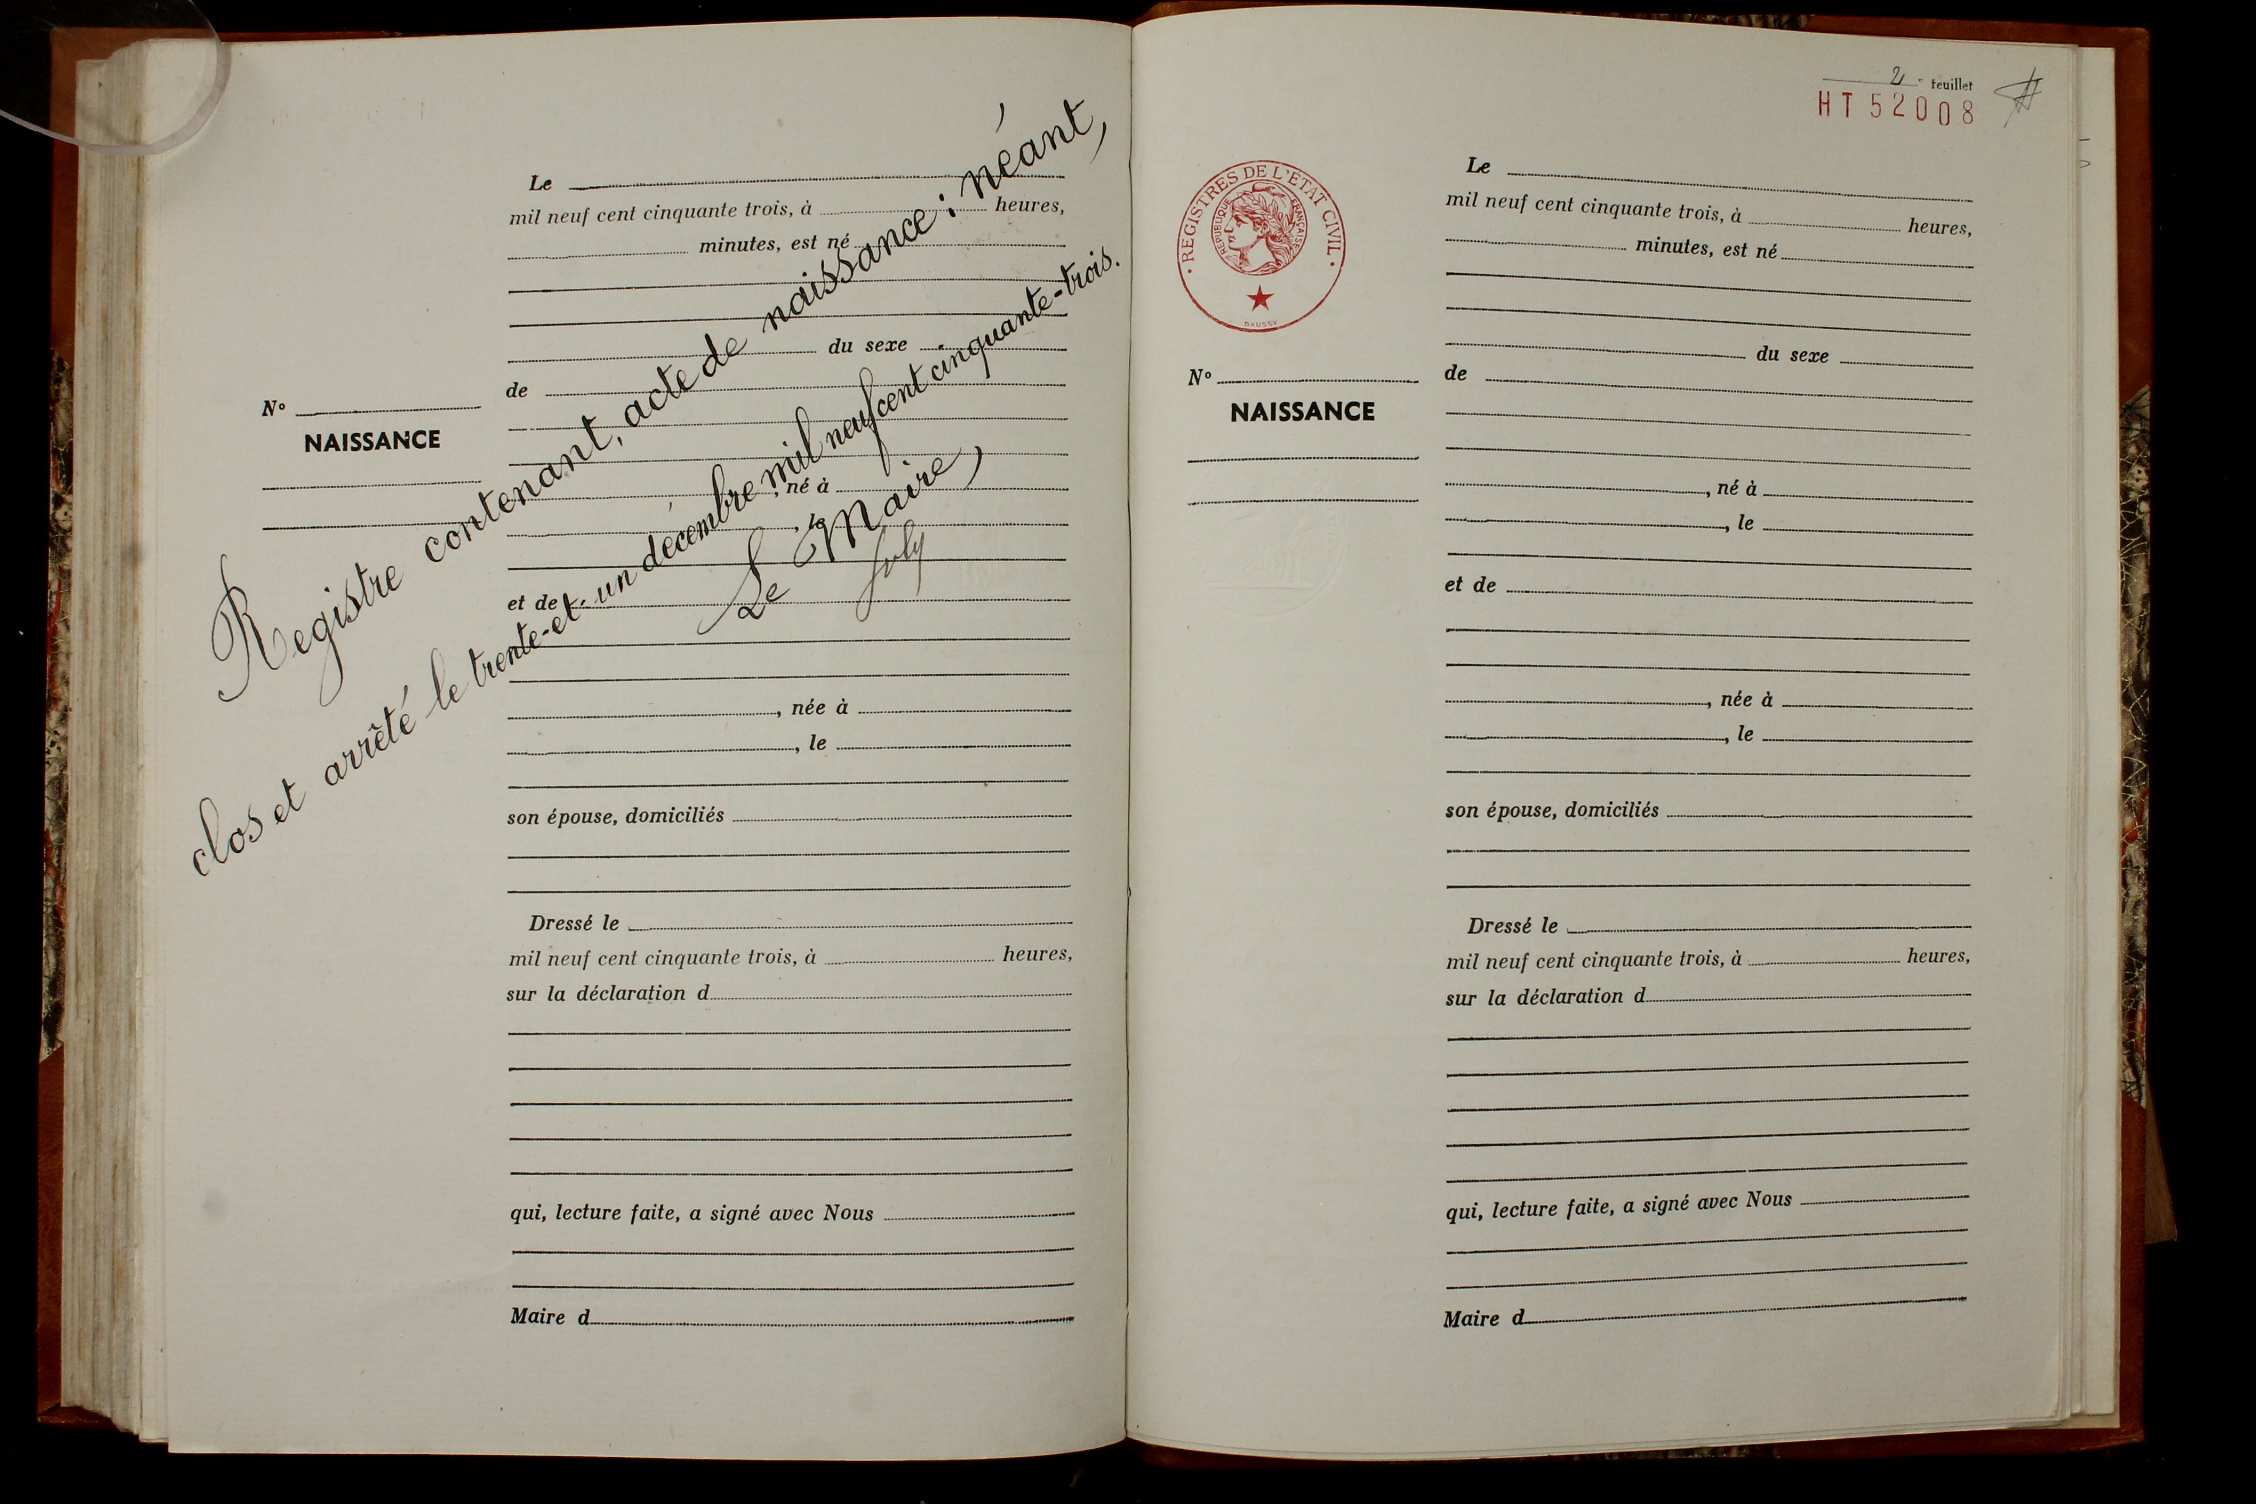 Le
mil neuf cent cinquante trois, à heures,
minutes, est né
du sexe
de
N°
NAISSANCE
né à
, le
et de
, née à
, le
son épouse, domiciliés
Dressé le
mil neuf cent cinquante trois, à heures,
sur la déclaration d
qui, lecture faite, a signé avec Nous
Maire d
Registre contenant, acte de naissance : néant,
clos et arrêté le trente-et-un décembre mil neuf cent cinquante-trois.
Le Maire,
2 e feuillet
HT 52008
REGISTRES DE L'ETAT CIVIL
REPUBLIQUE FRANÇAISE
N°
NAISSANCE
Le
mil neuf cent cinquante trois, à heures,
minutes, est né
du sexe
de
, né à
, le
et de
, née à
, le
son épouse, domiciliés
Dressé le
mil neuf cent cinquante trois, à heures,
sur la déclaration d
qui, lecture faite, a signé avec Nous
Maire d